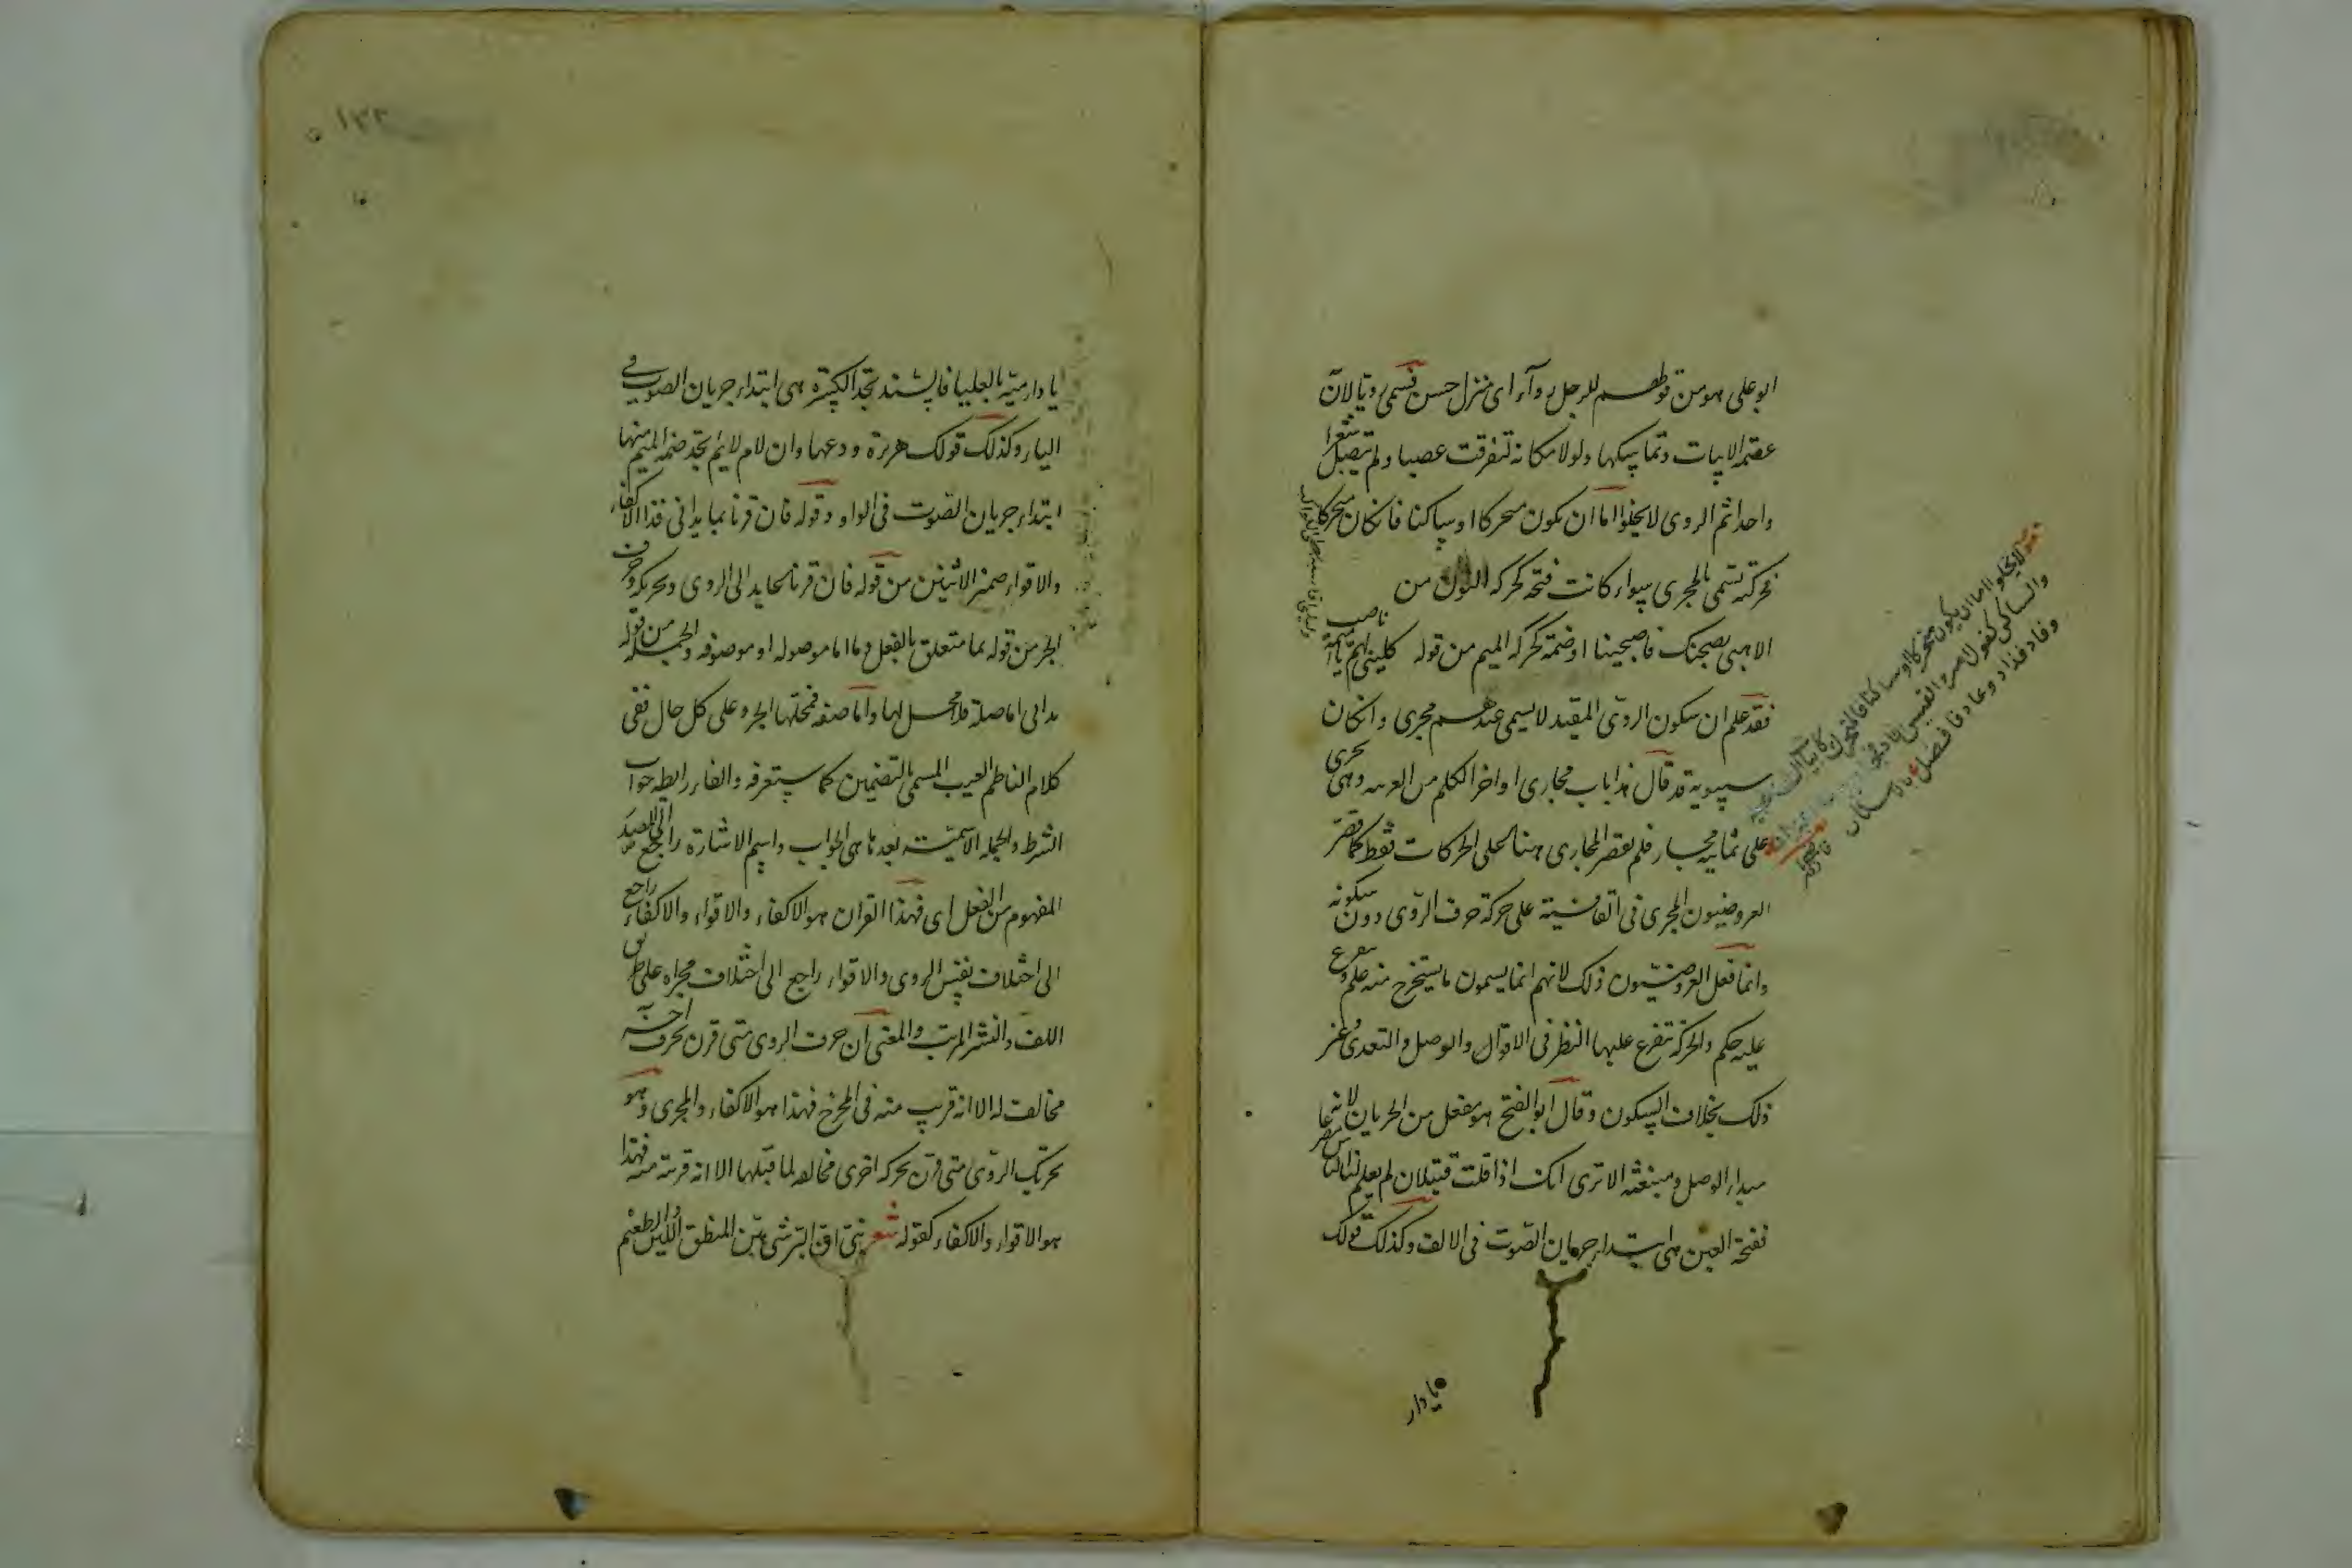 ابو على هو من قولهم للرجل رواء اى منظر حسن فسمى رويا لان
عصمة الابيات وتماسكها ولولا مكانه لتفرقت عصبا ولم يتصل شعرا
واحدا ثم الروى لا يخلو اما ان يكون متحركا او ساكنا فان كان متحركا
فحركته تسمى بالمجرى سواء كانت فتحة كحركة النون من
الا هبى بصحنك فاصبحينا او ضمة كحركة الميم من قوله كلينى لهم يا اميمة ناصب
فقد علم ان سكون الروى المقيد لا يسمى عندهم مجرى وان كان
سيبويه قد قال هذا باب مجارى اواخر الكلم من العربية وهى تجرى
على ثمانية مجار فلم يقصر المجارى هنا على الحركات فقط كما قصر
العروضيون المجرى فى القافية على حركة حرف الروى دون سكونه
وانما فعل العروضيون ذلك لانهم انما يسمون ما يستخرج منه علم و يتفرع
عليه حكم والحركة تتفرع عليها النظر فى الاقوال والوصل والتعدى وغير
ذلك بخلاف السكون وقال ابو الفتح هو مفعل من الجريان لانها
مبداء الوصل ومنبعثه الا ترى انك اذا قلت قتيلان لم يعلم لنا الناس مصرعا
ففتحة العين هى ابتداء جريان الصوت فى الالف وكذلك قولك
يا دار
لا يخلو اما ان يكون متحركا او ساكنا فالمتحرك
والساكن كقول امرء القيس
وقاد فذاد وعاد فافضل
يا دار مية بالعلياء فالسند تجد الكسرة هى ابتداء جريان الصوت فى
الياء وكذلك قولك هريرة ودعها وان لام لائم تجد ضمة الميم منها
ابتداء جريان الصوت فى الواو وقوله فان قرنا بما يدانى فذا الاكفاء
والاقواء ضمير الاثنين من قوله فان قرنا عايد الى الروى وتحريكه وحرف
الجر من قوله بما متعلق بالفعل وما اما موصولة او موصوفة والجملة من قوله
يدانى اما صلة فلا محل لها واما صفة فمحلها الجر وعلى كل حال ففى
كلام الناظم العيب المسمى بالتضمين كما ستعرفه والفاء رابطة جواب
الشرط والجملة الاسمية بعدها هى الجواب واسم الاشارة راجع الى المصدر
المفهوم من الفعل اى فهذا القران هو الاكفاء والاقواء والاكفاء راجع
الى اختلاف نفس الروى والاقواء راجع الى اختلاف مجراه على طريق
اللف والنشر المرتب والمعنى ان حرف الروى متى قرن بحرف اخر
مخالف له الا انه قريب منه فى المخرج فهذا هو الاكفاء والمجرى وهو
تحريك الروى متى قرن بحركة اخرى مخالفة لما قبلها الا انه قريبة منه فهذا
هو الاقواء والاكفاء كقوله شعر بنى ان البر شئ هين المنطق اللين والطعيم